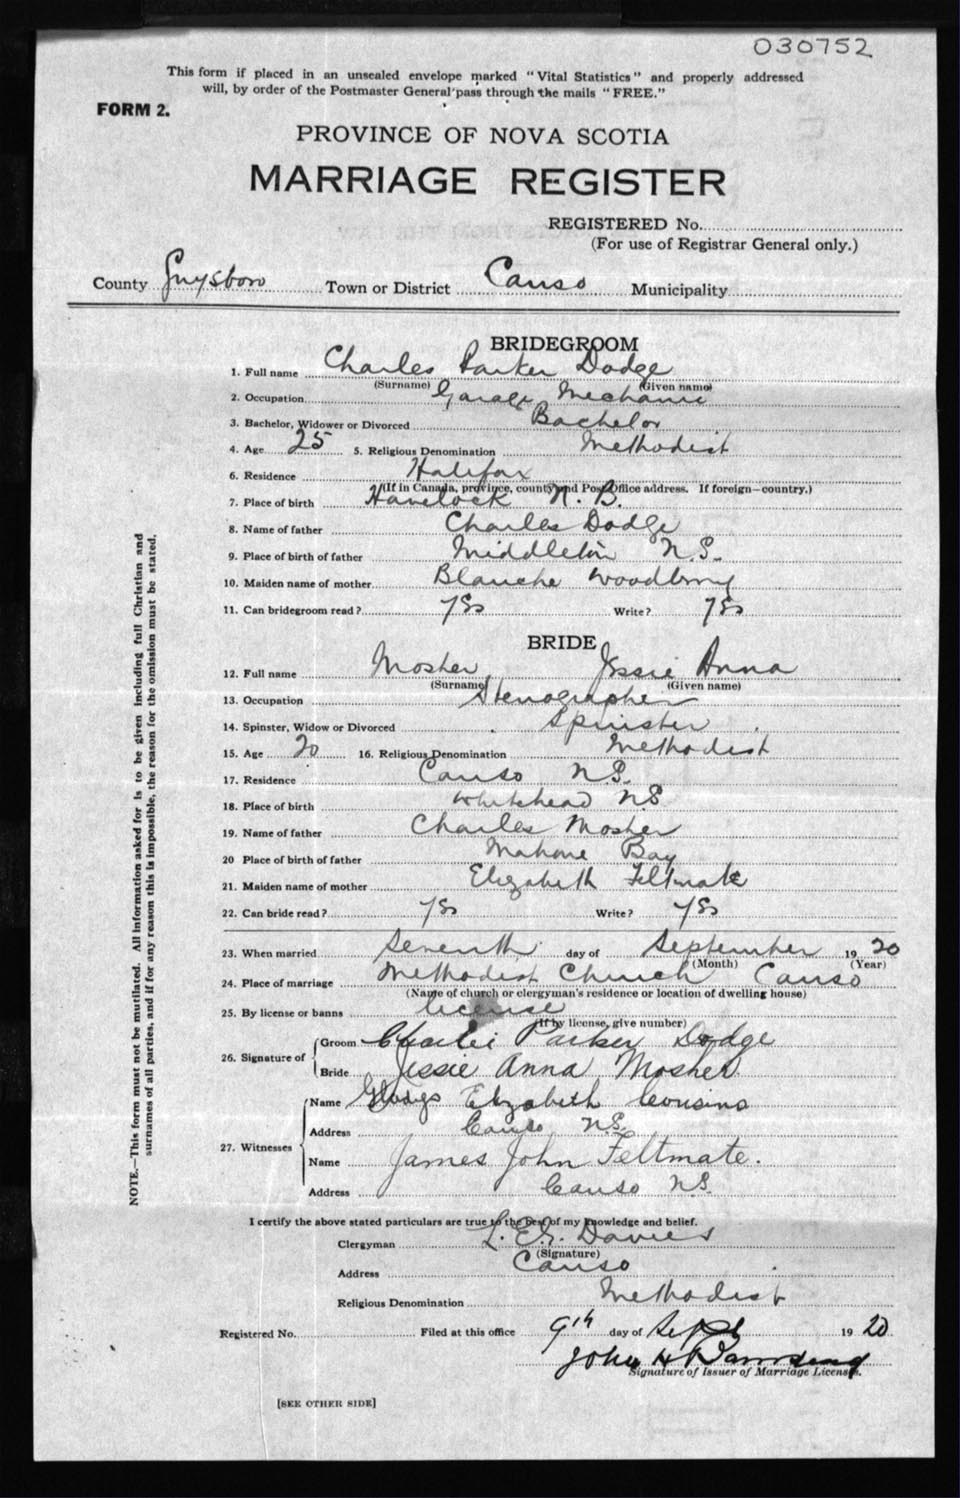 030752
This form if placed in an unsealed envelope marked "Vital Statistics" and properly addressed
will, by order of the Postmaster General pass through the mails "FREE."
FORM 2.
PROVINCE OF NOVA SCOTIA
MARRIAGE REGISTER
REGISTERED No.
(For use of Registrar General only.)
County Guysboro Town or District Canso Municipality
BRIDEGROOM
1. Full name Charles Parker Dodge
(Surname) (Given name)
2. Occupation Garage Mechanic
3. Bachelor, Widower or Divorced Bachelor
4. Age 25 5. Religious Denomination Methodist
6. Residence Halifax
(If in Canada, province, county and Post Office address. If foreign—country.)
7. Place of birth Havelock N. B.
8. Name of father Charles Dodge
9. Place of birth of father Middleton N.S.
10. Maiden name of mother Blanche
11. Can bridegroom read? Yes Write? Yes
BRIDE
12. Full name Mosher Jessie Anna
(Surname) (Given name)
13. Occupation Stenographer
14. Spinster, Widow or Divorced Spinster
15. Age 20 16. Religious Denomination Methodist
17. Residence Canso N.S.
18. Place of birth Whitehead NS
19. Name of father Charles Mosher
20 Place of birth of father Mahone Bay
21. Maiden name of mother Elizabeth Feltmate
22. Can bride read? Yes Write? Yes
23. When married Seventh day of September 1920
(Month) (Year)
24. Place of marriage Methodist Church Canso
(Name of church or clergyman's residence or location of dwelling house)
25. By license or banns license
(If by license, give number)
26. Signature of Groom Charlei Parker Dodge
Bride Jessie Anna Mosher
27. Witnesses
Name Gladys Elizabeth Cousins
Address Canso N.S.
Name James John Feltmate.
Address Canso N.S.
I certify the above stated particulars are true to the best of my knowledge and belief.
Clergyman Davies
(Signature)
Address Canso
Religious Denomination Methodist
Registered No. Filed at this office 9th day of Sept 1920
John H
Signature of Issuer of Marriage Licenses.
[SEE OTHER SIDE]
NOTE.—This form must not be mutilated. All information asked for is to be given including full Christian and
surnames of all parties, and if for any reason this is impossible, the reason for the omission must be stated.